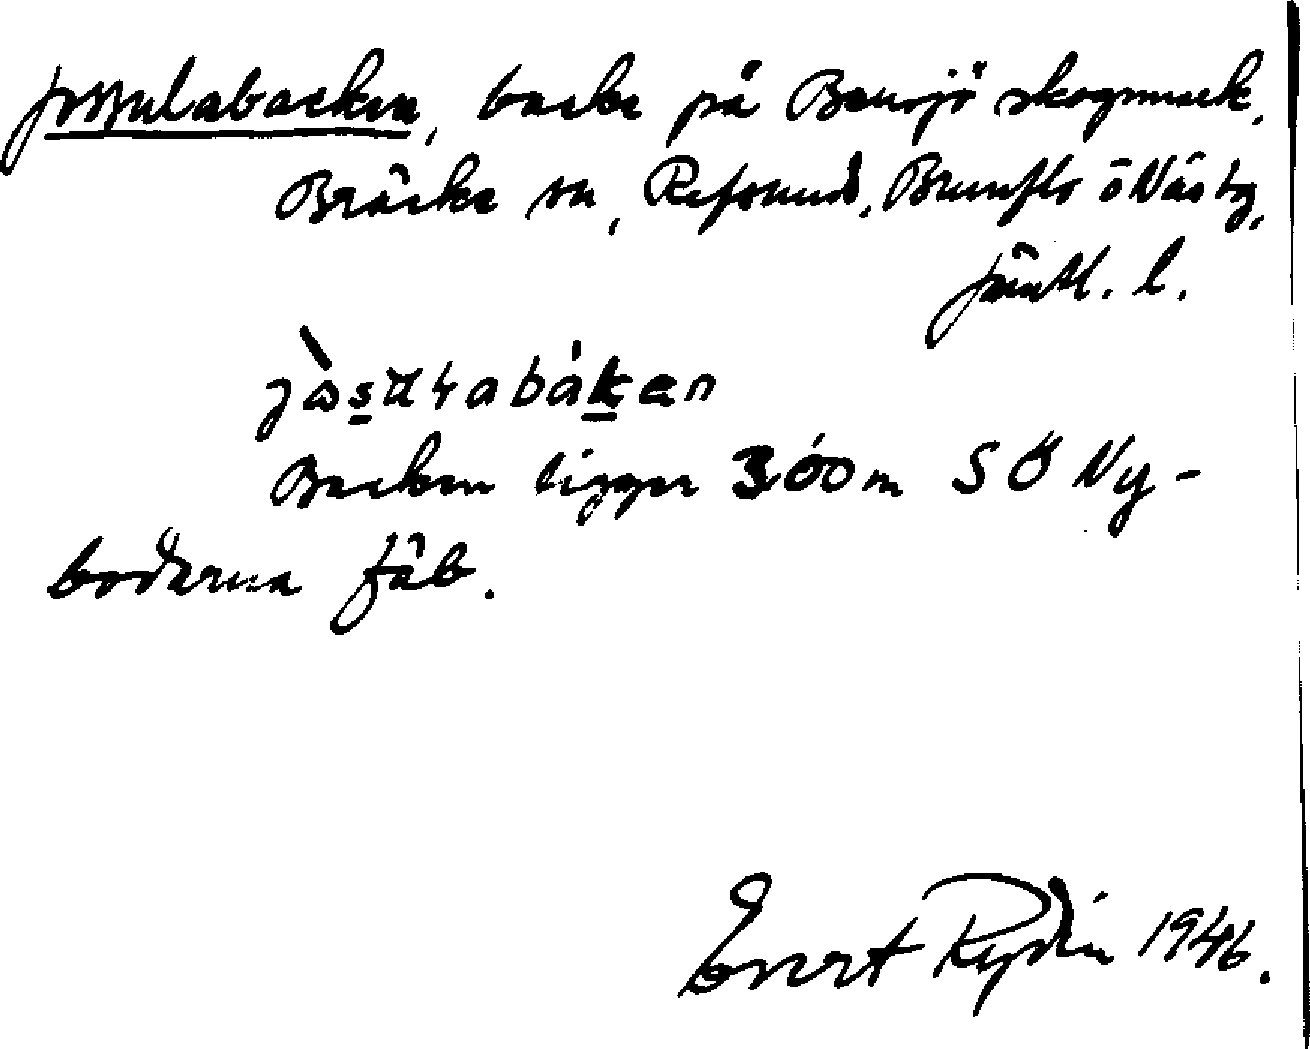 Jossulabacken, backe på Bensjö skogsmark,
Bräcke sn, Refsund, Brunflo o Näs tg,
Jämtl. l.
Backen ligger 300 m SÖ Ny-
boderna fäb.
Evert Rydin 1946.